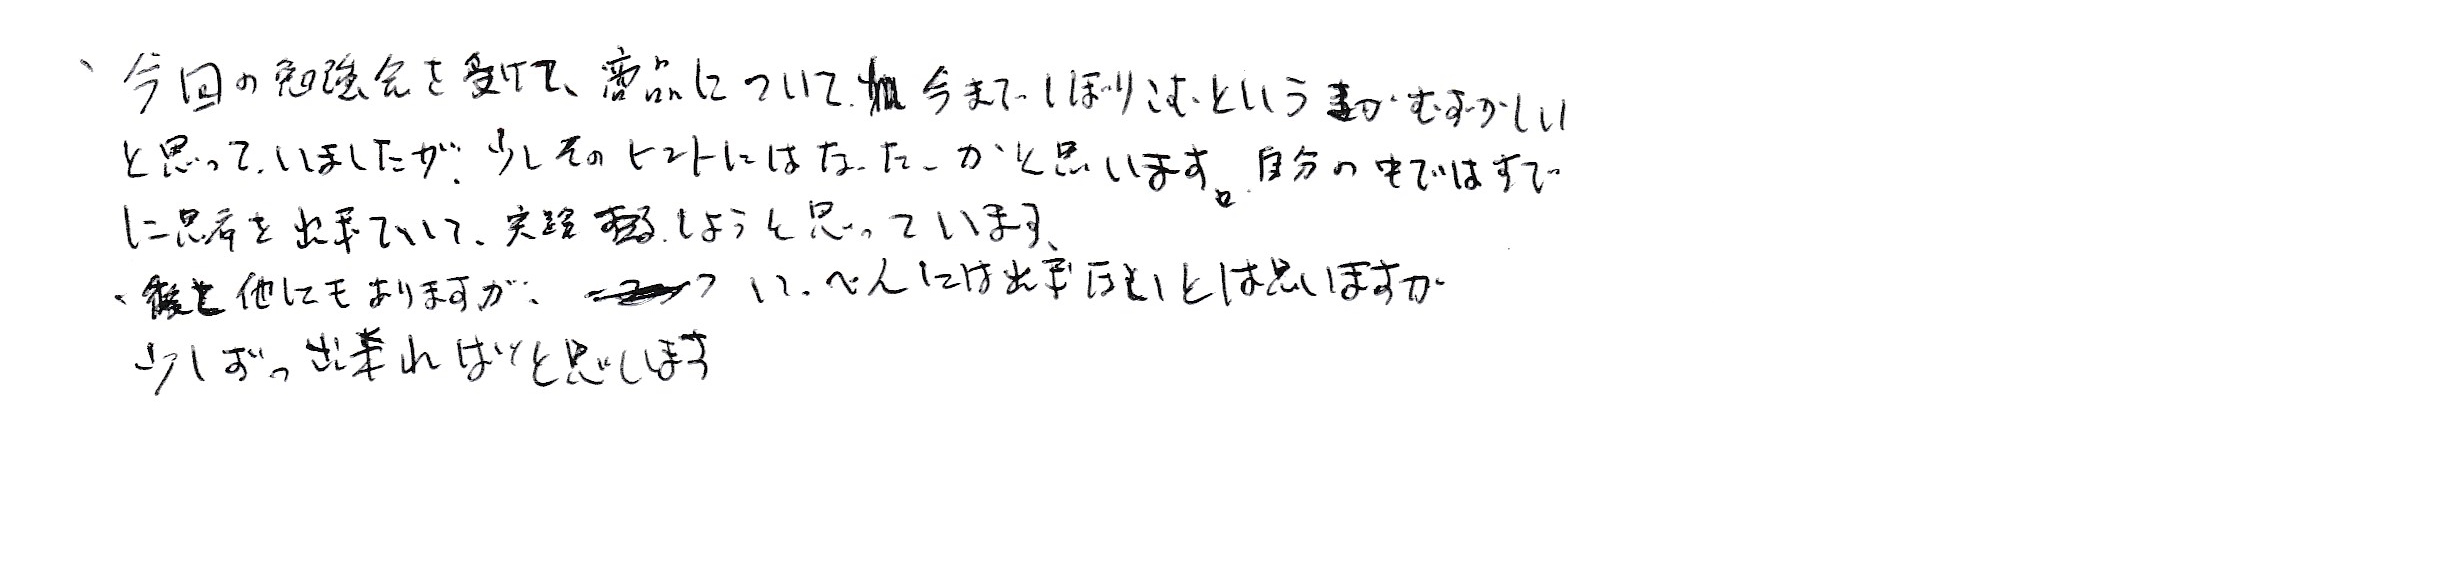 ・今回の勉強会を受けて、商品について、今までしぼりこむというのがむずかしい
と思っていましたが、少しそのヒントにはなったかと思います。自分の中ではすで
に思考を出来ていて、実践しようと思っています、
・他にもありますが、いっぺんには出来ないとは思いますが
少しずつ出来ればと思います